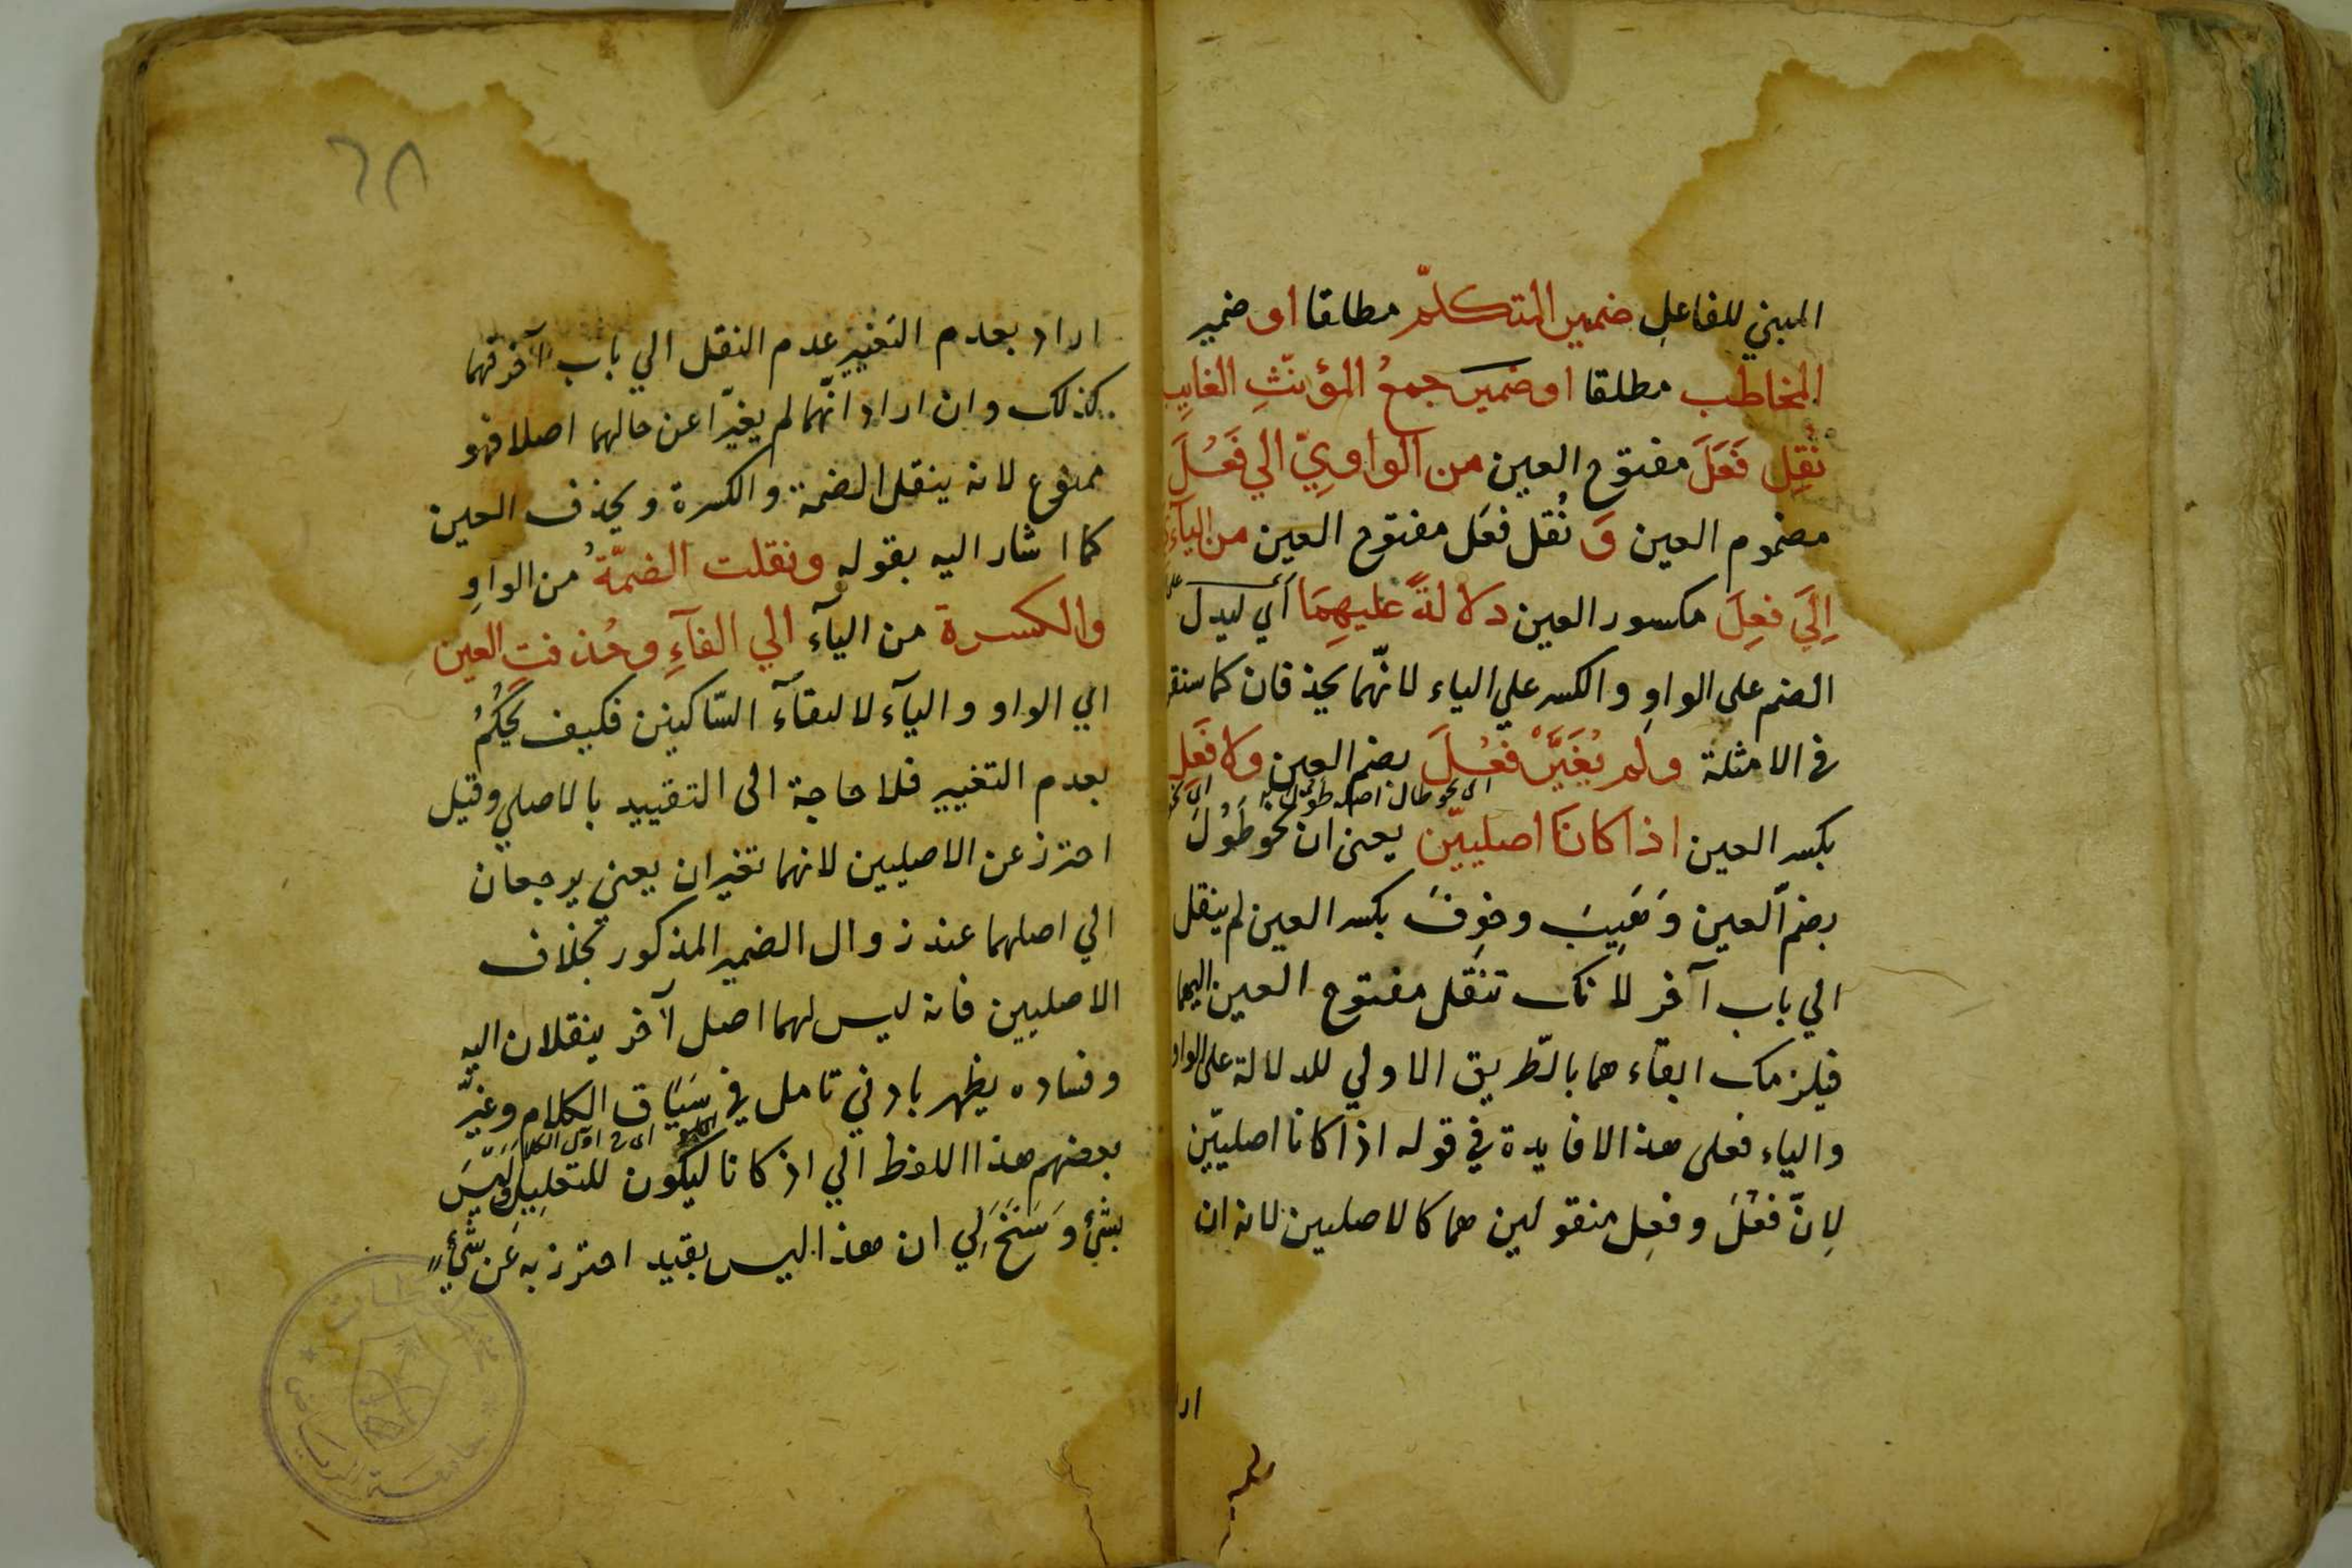 المبني للفاعلِ ضمير المتكلّم مطلقا او ضمير
المخاطب مطلقا او ضمير جمعُ المؤنّثِ الغايبِ
نُقِل فَعَلَ مفتوح العين من الواويِّ الي فَعُلَ
مضموم العين وَ نُقل فعَل مفتوح العين من اليآءِ
اِلَي فعِلَ مكسور العين دلالةً عليهِمَا أي ليدل على
الضم على الواوِ والكسر علي الياء لانّهما يحذفان كما ستقر
في الامثلة ولم يُغَيَّرْ فَعُلَ بضم العين ولا فَعِل
اى نحو طال اصله طَوُلَ
بكسر العين اذا كانَا اصليّين يعنى ان نحو طَوُلَ
بضمّ العين وَ هَيِبَ وخوِفَ بكسر العين لم ينقل
الي باب آخر لانك تنقل مفتوح العين اليهما
فيلزمك ابقاءهما بالطّريق الاولي للدلالة على الواو
والياء فعلى هذا لا فايدة في قوله اذا كانا اصليّين
لِانّ فعُلَ وفعِل منقولين هما كالاصليين لانه ان
ارا
٦٨
اراد بعدم التغيير عدم النقل الي باب آخر فهما
كذلك وان اراد انّهما لم يغيّرا عن حالهما اصلا فهو
ممنوع لانه ينقل الضمة والكسرة ويحذف العين
كما اشار اليه بقوله ونقلت الضمّةُ من الواوِ
والكسرة من اليآء الي الفآءِ وحُذفتِ العين
اي الواو واليآء لالتقآء السّاكنين فكيف يحكُمُ
بعدم التغيير فلا حاجة الى التقييد بالاصلي وقيل
احترز عن الاصليين لانهما تغيران يعني يرجعان
الي اصلهما عند زوال الضمير المذكور بخلاف
الاصليين فانه ليس لهما اصل آخر ينقلان اليه
وفساده يظهر بادني تامل في سَيَاق الكلام وغيّر
بعضهم هذا اللفظ الي اذ كانا ليكون للتعليل وليْسَ
بشئ وَسَنَحَ لِي ان هذا ليس بقيد احترز به عَن شَيْءٍ
جامعة الرياض